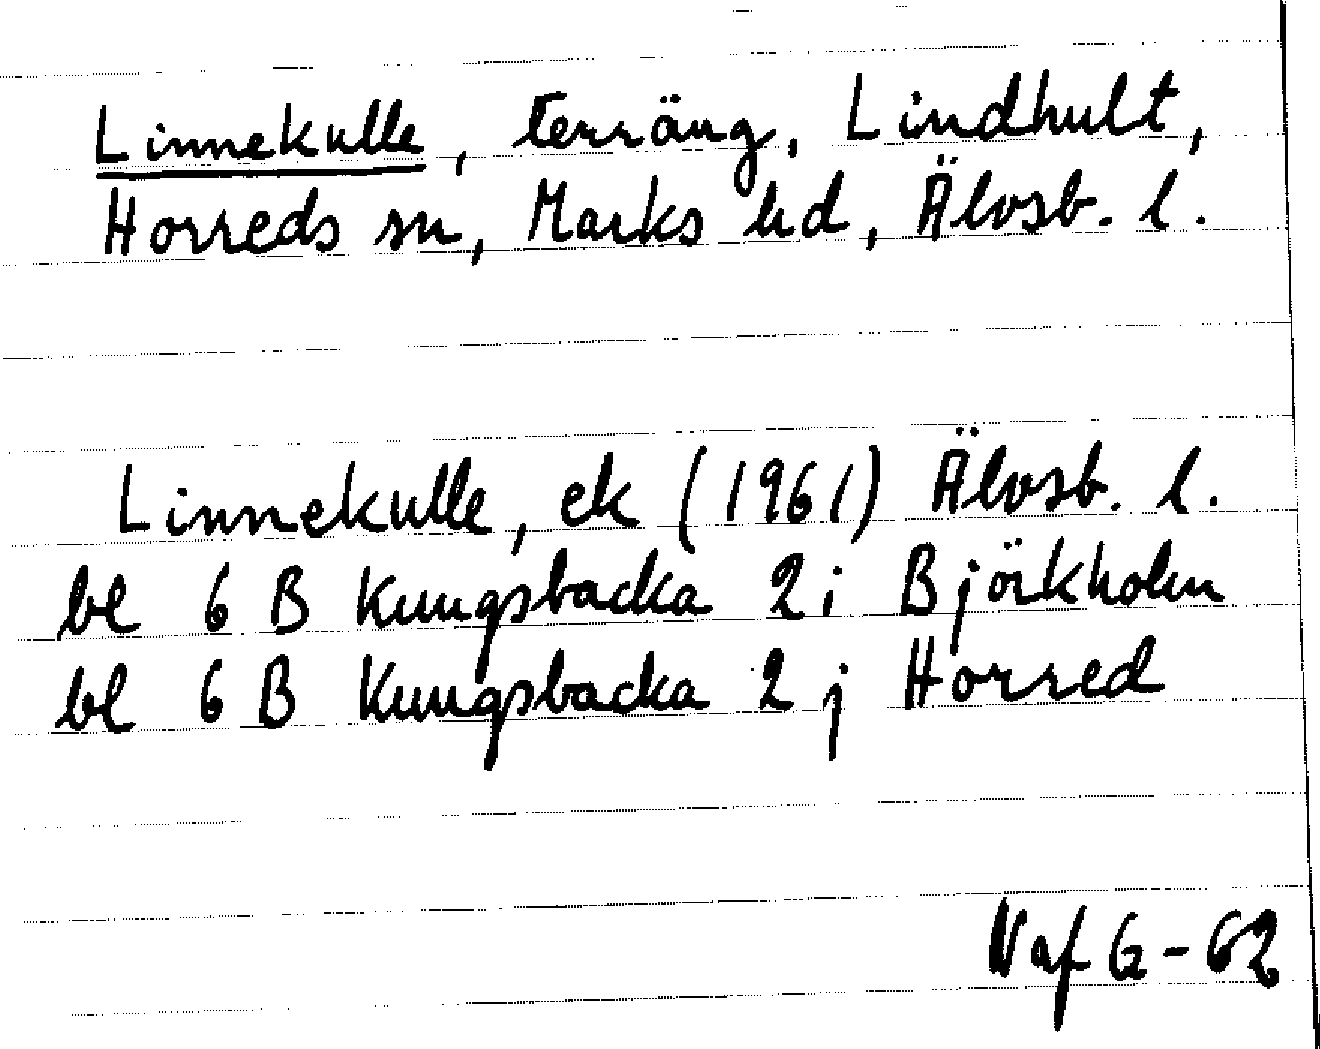 Linnekulle, terräng, Lindhult,
Horreds sn, Marks hd, Älvsb. l.
Linnekulle, ek (1961) Älvsb. l.
bl 6 B Kungsbacka 2 i Björkholm
bl 6 B Kungsbacka 2 j Horred
Vaf G - 62